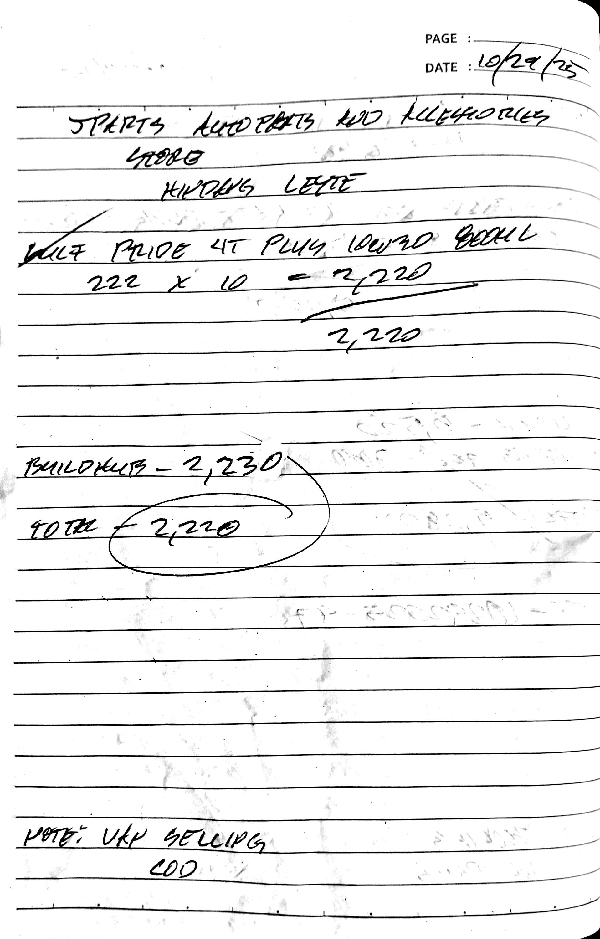 PAGE :
DATE : 10/29/25
JPARTS AUTOPARTS AND ACCESSORIES
STORE
HINDANG LEYTE
GULF PRIDE 4T PLUS 10W30 800ML
222 X 10 = 2,220
2,220
BUILDHUB - 2,230
TOTAL - 2,220
NOTE: VAN SELLING
COD